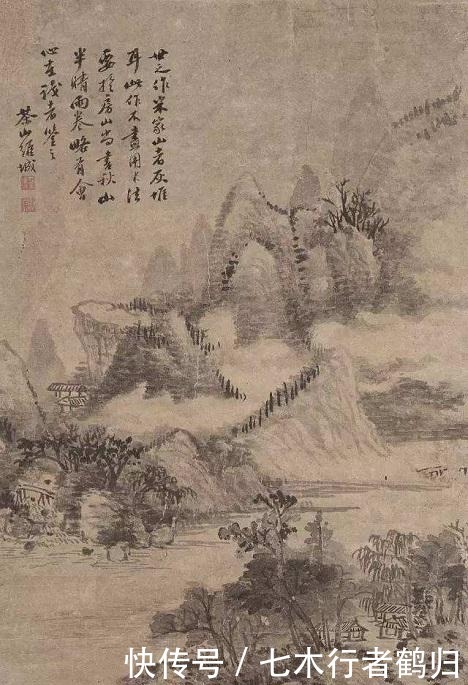 世之作米家山者灰堆
耳此作不盡用米法
要於房山尚書秋山
半晴雨卷略有會
心在識者鑒之
茶山維城
快传号 / 七木行者鹤归